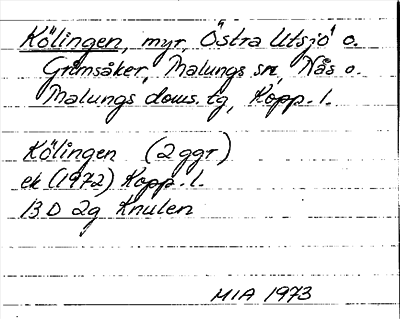 Kölingen, myr, Östra Utsjö o.
Grimsåker, Malungs sn, Nås o.
Malungs doms. tg, Kopp. l.
Kölingen (2 ggr)
ek (1972) Kopp. l.
13 D 2g Knulen
MIA 1973